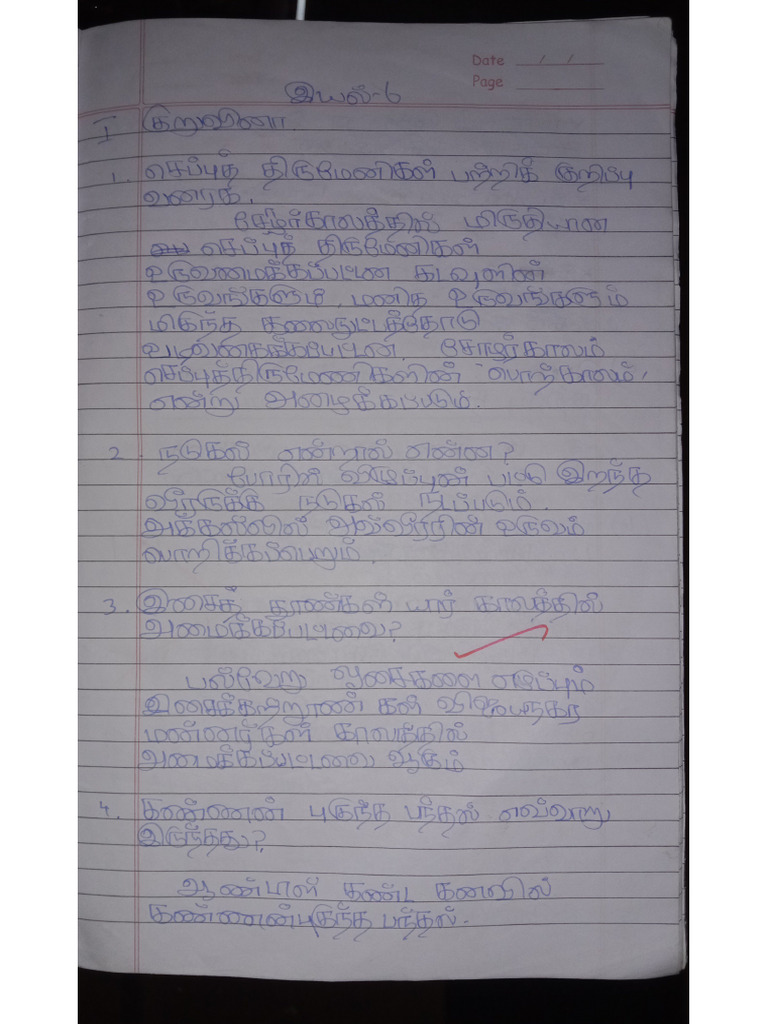 Date / /
Page
இயல்-6
I குறுவினா.
1. செப்புத் திருமேனிகள் பற்றிக் குறிப்பு
வரைக.
சோழர்காலத்தில் மிகுதியான
செப்புத் திருமேனிகள்
உருவமைக்கப்பட்டன கடவுளின்
உருவங்களும், மனித உருவங்களும்
மிகுந்த கலைநுட்பத்தோடு
வடிவமைக்கப்பட்டன. சோழர்காலம்
செப்புத்திருமேனிகளின் "பொற்காலம்'
என்று அழைக்கப்படும்.
2. நடுகல் என்றால் என்ன?
போரில் விழுப்புண் பட்டு இறந்த
வீரருக்கு நடுகல் நடப்படும்.
அக்கல்லில் அவ்வீரரின் உருவம்
பொறிக்கப்பெறும்.
3. இசைத் தூண்கள் யார் காலத்தில்
அமைக்கப்பட்டவை?
பல்வேறு ஓசைகளை எழுப்பும்
இசைக்கற்றூண் கள் விஜயநகர
மன்னர்கள் காலத்தில்
அமைக்கப்பட்டவை ஆகும்
4. கண்ணன் புகுந்த பந்தல் எவ்வாறு
இருந்தது?
ஆண்டாள் கண்ட கனவில்
கண்ணன்புகுந்த பந்தல்.